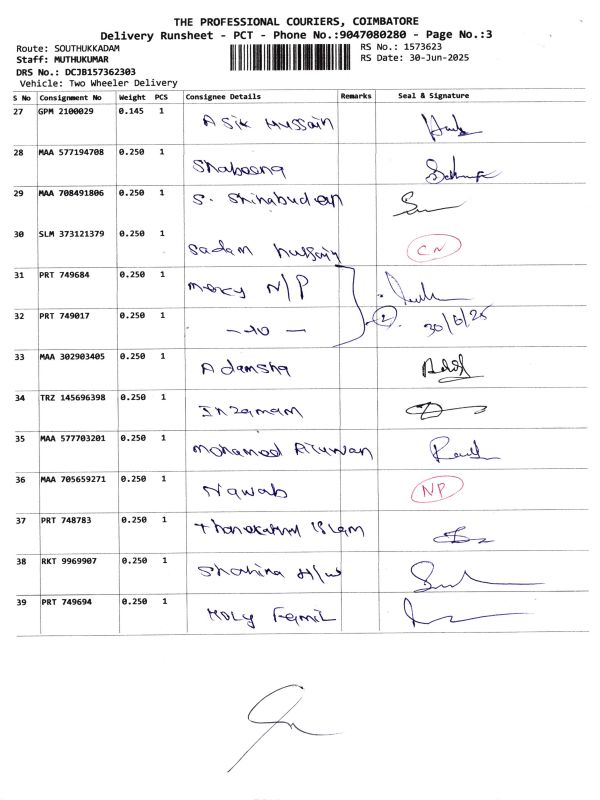 THE PROFESSIONAL COURIERS, COIMBATORE
Delivery Runsheet - PCT - Phone No.:9047080280 - Page No.:3
Route: SOUTHUKKADAM RS No.: 1573623
Staff: MUTHUKUMAR RS Date: 30-Jun-2025
DRS No.: DCJB157362303
Vehicle: Two Wheeler Delivery
S No Consignment No Weight PCS Consignee Details Remarks Seal & Signature
27 GPM 2100029 0.145 1 Asik Hussain
28 MAA 577194708 0.250 1 Shabeena
29 MAA 708491806 0.250 1 S. Shihabudeen
30 SLM 373121379 0.250 1 Sadam Hussain CN
31 PRT 749684 0.250 1 Mercy N/P
32 PRT 749017 0.250 1 2 30/6/25
33 MAA 302903405 0.250 1 Adamsha
34 TRZ 145696398 0.250 1 Inzamam
35 MAA 577703201 0.250 1 Mohamed Rizwan
36 MAA 705659271 0.250 1 Nawab NP
37 PRT 748783 0.250 1 Islam
38 RKT 9969907 0.250 1 Shahina H/W
39 PRT 749694 0.250 1 Holy Famil